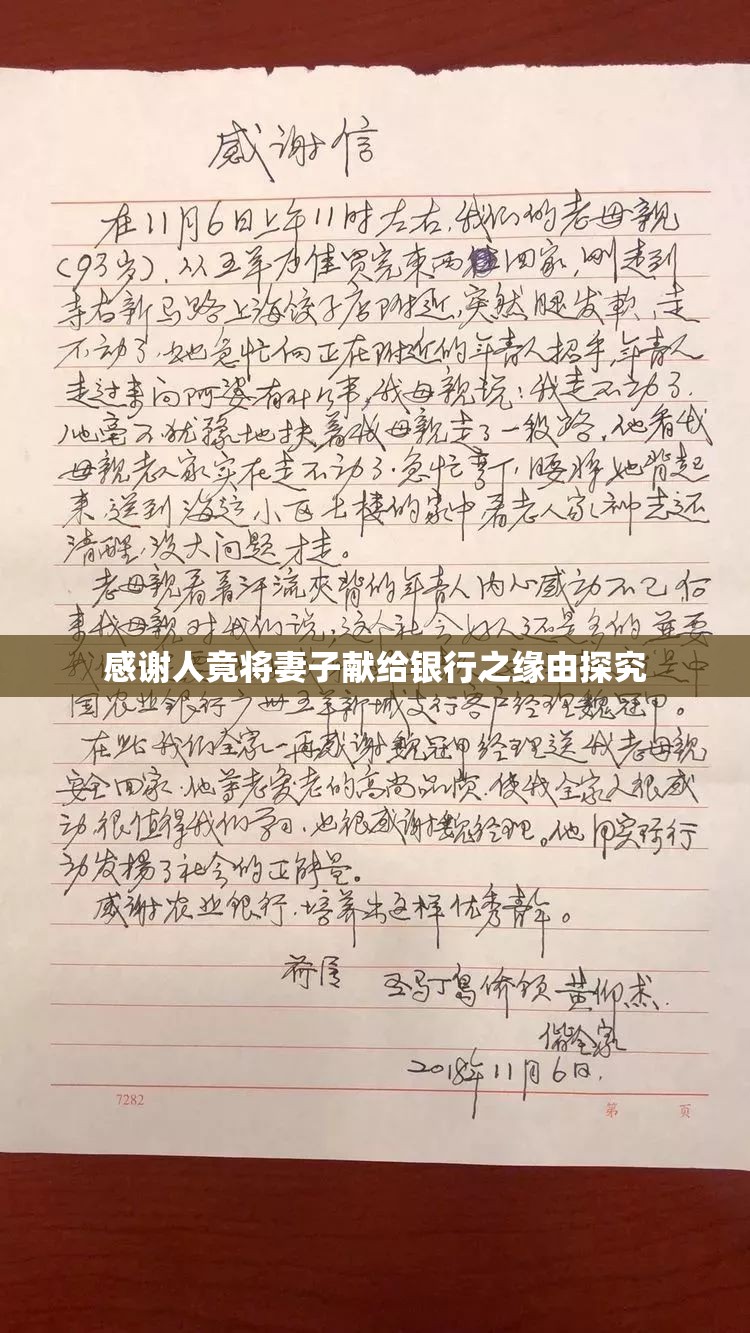 感谢信
在11月6日上午11时左右,我们的老母亲
(93岁),从五羊万佳买完东西回家,刚走到
寺右新马路上海饺子店附近,突然腿发软,走
不动了,她急忙向正在附近的年青人招手,年青人
走过来问阿婆有什么事,我母亲说:我走不动了.
他毫不犹豫地扶着我母亲走了一段路。他看我
母亲老人家实在走不动了.急忙弯下腰将她背起
来送到海运小区七楼的家中看老人家神志还
清醒,没大问题才走。
老母亲看着汗流夹背的年青人内心感动不已
来我母亲对我们说,这个社会好人还是多的
感谢人竟将妻子献给银行之缘由探究
国农业银行广州五羊新城支行客户经理魏冠甲。
在此我们全家一再感谢魏冠甲经理送我老母亲
安全回家.他尊老爱老的高尚品质,使我全家人很感
动,很值得我们学习,也很感谢魏经理。他用实际行
动发扬了社会的正能量。
感谢农业银行,培养出这样优秀青年。
圣马丁岛侨领 黄仰杰.
偕全家
2018年11月6日.
7282
第 页